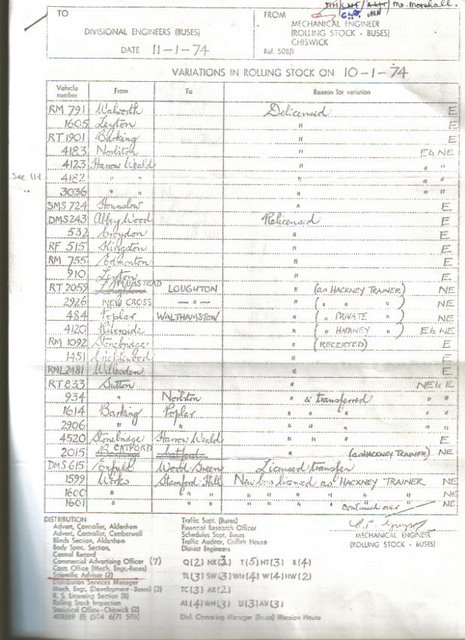 Mr. Marshall.
TO
DIVISIONAL ENGINEERS (BUSES)
DATE 11-1-74
FROM
MECHANICAL ENGINEER
(ROLLING STOCK - BUSES)
CHISWICK
Ref. 508/1
VARIATIONS IN ROLLING STOCK ON 10-1-74
Vehicle number From To Reason for variation
RM 791 Walworth Delicensed E
1605 Leyton " E
RT 1901 Barking " E
4183 Norbiton " E & NE
4123 Harrow Weald " " "
See 114 4182 " " " " "
3036 " " " " "
SMS 724 Hounslow " E
DMS 243 Abbey Wood Relicensed E
532 Croydon " E
RF 515 Kingston " E
RM 755 Edmonton " E
910 Leyton " E
RT 2059 PLUMSTEAD LOUGHTON " (as HACKNEY TRAINER) NE
2926 NEW CROSS — " — " ( " " " ) NE
484 Poplar WALTHAMSTOW " ( " PRIVATE " ) NE
4120 Riverside " ( " HACKNEY " ) E & NE
RM 1092 Stonebridge " (RECERTED) E
1451 " E
RML 2481 Willesden " E
RT 833 Sutton " NE & E
934 " Norbiton " & transferred " "
1614 Barking Poplar " " " " "
2906 " " " " " " "
4520 Stonebridge Harrow Weald " " " E
2015 CATFORD " (as HACKNEY TRAINER) NE
DMS 615 Enfield Wood Green Licensed transfer E
1599 Works Stamford Hill New bus licensed as HACKNEY TRAINER NE
1600 " " " " " " " " " NE
1601 " " " " " " " " " NE
continued over
MECHANICAL ENGINEER
(ROLLING STOCK - BUSES)
DISTRIBUTION
Advert. Controller, Aldenham
Advert. Controller, Camberwell
Blinds Section, Aldenham
Body Spec. Section,
Central Record
Commercial Advertising Officer (7)
Costs Office (Mech. Engr.-Buses)
Scientific Adviser (2)
Distribution Services Manager
Mech. Engr. (Development - Buses) (2)
R. S. Licensing Section (8)
Rolling Stock Inspection
Statistical Office - Chiswick (2)
408/69 (1) (504 6/71 508)
Traffic Supt. (Buses)
Financial Research Officer
Schedules Supt. Buses
Traffic Auditor, Griffith House
District Engineers
Q(2) HX(2) T(5) HT(3) R(4)
TL(3) SW(3) WH(4) W(4) HW(2)
TC(3) AR(2)
AL(4) WH(3) U(3) AV(3)
Divl. Operating Manager (Buses) Mansion House